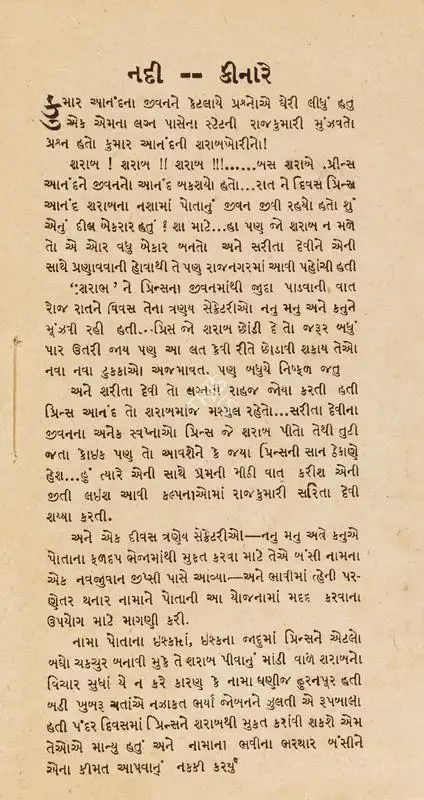 નદી -- કીનારે
કુમાર આનંદના જીવનને કેટલાયે પ્રશ્નોએ ઘેરી લીધું હતુ
એક એમના લગ્ન પાસેના સ્ટેટની રાજકુમારી મુંઝવતો
પ્રશ્ન હતો કુમાર આનંદની શરાબખોરીનો!
શરાબ ! શરાબ !! શરાબ !!!......બસ શરાબે પ્રીન્સ
આનંદને જીવનનો આનંદ બકશયો હતો...રાત ને દિવસ પ્રિન્સ
આનંદ શરાબના નશામાં પોતાનું જીવન જીવી રહયો હતો શું
એનું દીલ બેકરાર હતું ? શા માટે...હા પણ જો શરાબ ન મળે
તો એ ઓર વધુ બેકાર બનતો અને સરીતા દેવીને એની
સાથે પ્રણાવવાની હોવાથી તે પણ રાજનગરમાં આવી પહોંચી હતી
'શરાબ' ને પ્રિન્સના જીવનમાંથી જુદા પાડવાની વાત
રોજ રાતને દિવસ તેના ત્રણેય સેક્રેટરીઓ નનુ મનુ અને કનુને
મૂંઝવી રહી હતી...પ્રિંસ જો શરાબ છોડી દે તો જરૂર બધું
પાર ઉતરી જાય પણ આ લત કેવી રીતે છોડાવી શકાય તેઓ
નવા નવા ટુકકાઓ અજમાવત. પણ બધુયે નિષ્ફળ જતુ
અને શરીતા દેવી તો લગ્નની રાહજ જોયા કરતી હતી
પ્રિન્સ આનંદ તો શરાબમાંજ મસ્ગુલ રહેતો...સરીતા દેવીના
જીવનના અનેક સ્વપ્નાઓ પ્રિન્સ જે શરાબ પીતો તેથી તુટી
જતા કોઇક પણ તો આવશેને કે જયા પ્રિન્સની સાન ઠેકાણે
હેશ...હું ત્યારે એની સાથે પ્રેમની મીઠી વાત કરીશ એની
જીતી લઇશ આવી કલ્પનાઓમાં રાજકુમારી સરિતા દેવી
શય્યા કરતી.
અને એક દીવસ ત્રણેય સેક્રેટરીઓ—નનુ મનુ અને કનુએ
પોતાના ફળદપ ભેજામાંથી મુકત કરવા માટે તેઓ બંસી નામના
એક નવજુવાન જીપ્સી પાસે આવ્યા—અને ભાવીમાં તેહની પર-
ણેતર થનાર નામાને પોતાની આ યોજનામાં મદદ કરવાના
ઉપયોગ માટે માગણી કરી.
નામા પોતાના ઇશ્કમાં, ઇશ્કના જાદુમાં પ્રિન્સને એટલો
બધો ચકચુર બનાવી મુકે તે શરાબ પીવાનું માંડી વાળે શરાબનો
વિચાર સુધાં યે ન કરે કારણ કે નામા ઘણીજ હુરનપૂર હતી
બડી ખુબરૂ અતાંએ નઝાકત ભર્યાં જોબનને ઝુલતી એ રૂપબાલા
હતી પંદર દિવસમાં પ્રિન્સને શરાબથી મુકત કરાવી શકશે એમ
તેઓએ માન્યુ હતું અને નામાના ભવીના ભરથાર બંસીને
એના કીમત આપવાનું નકકી કર્યું